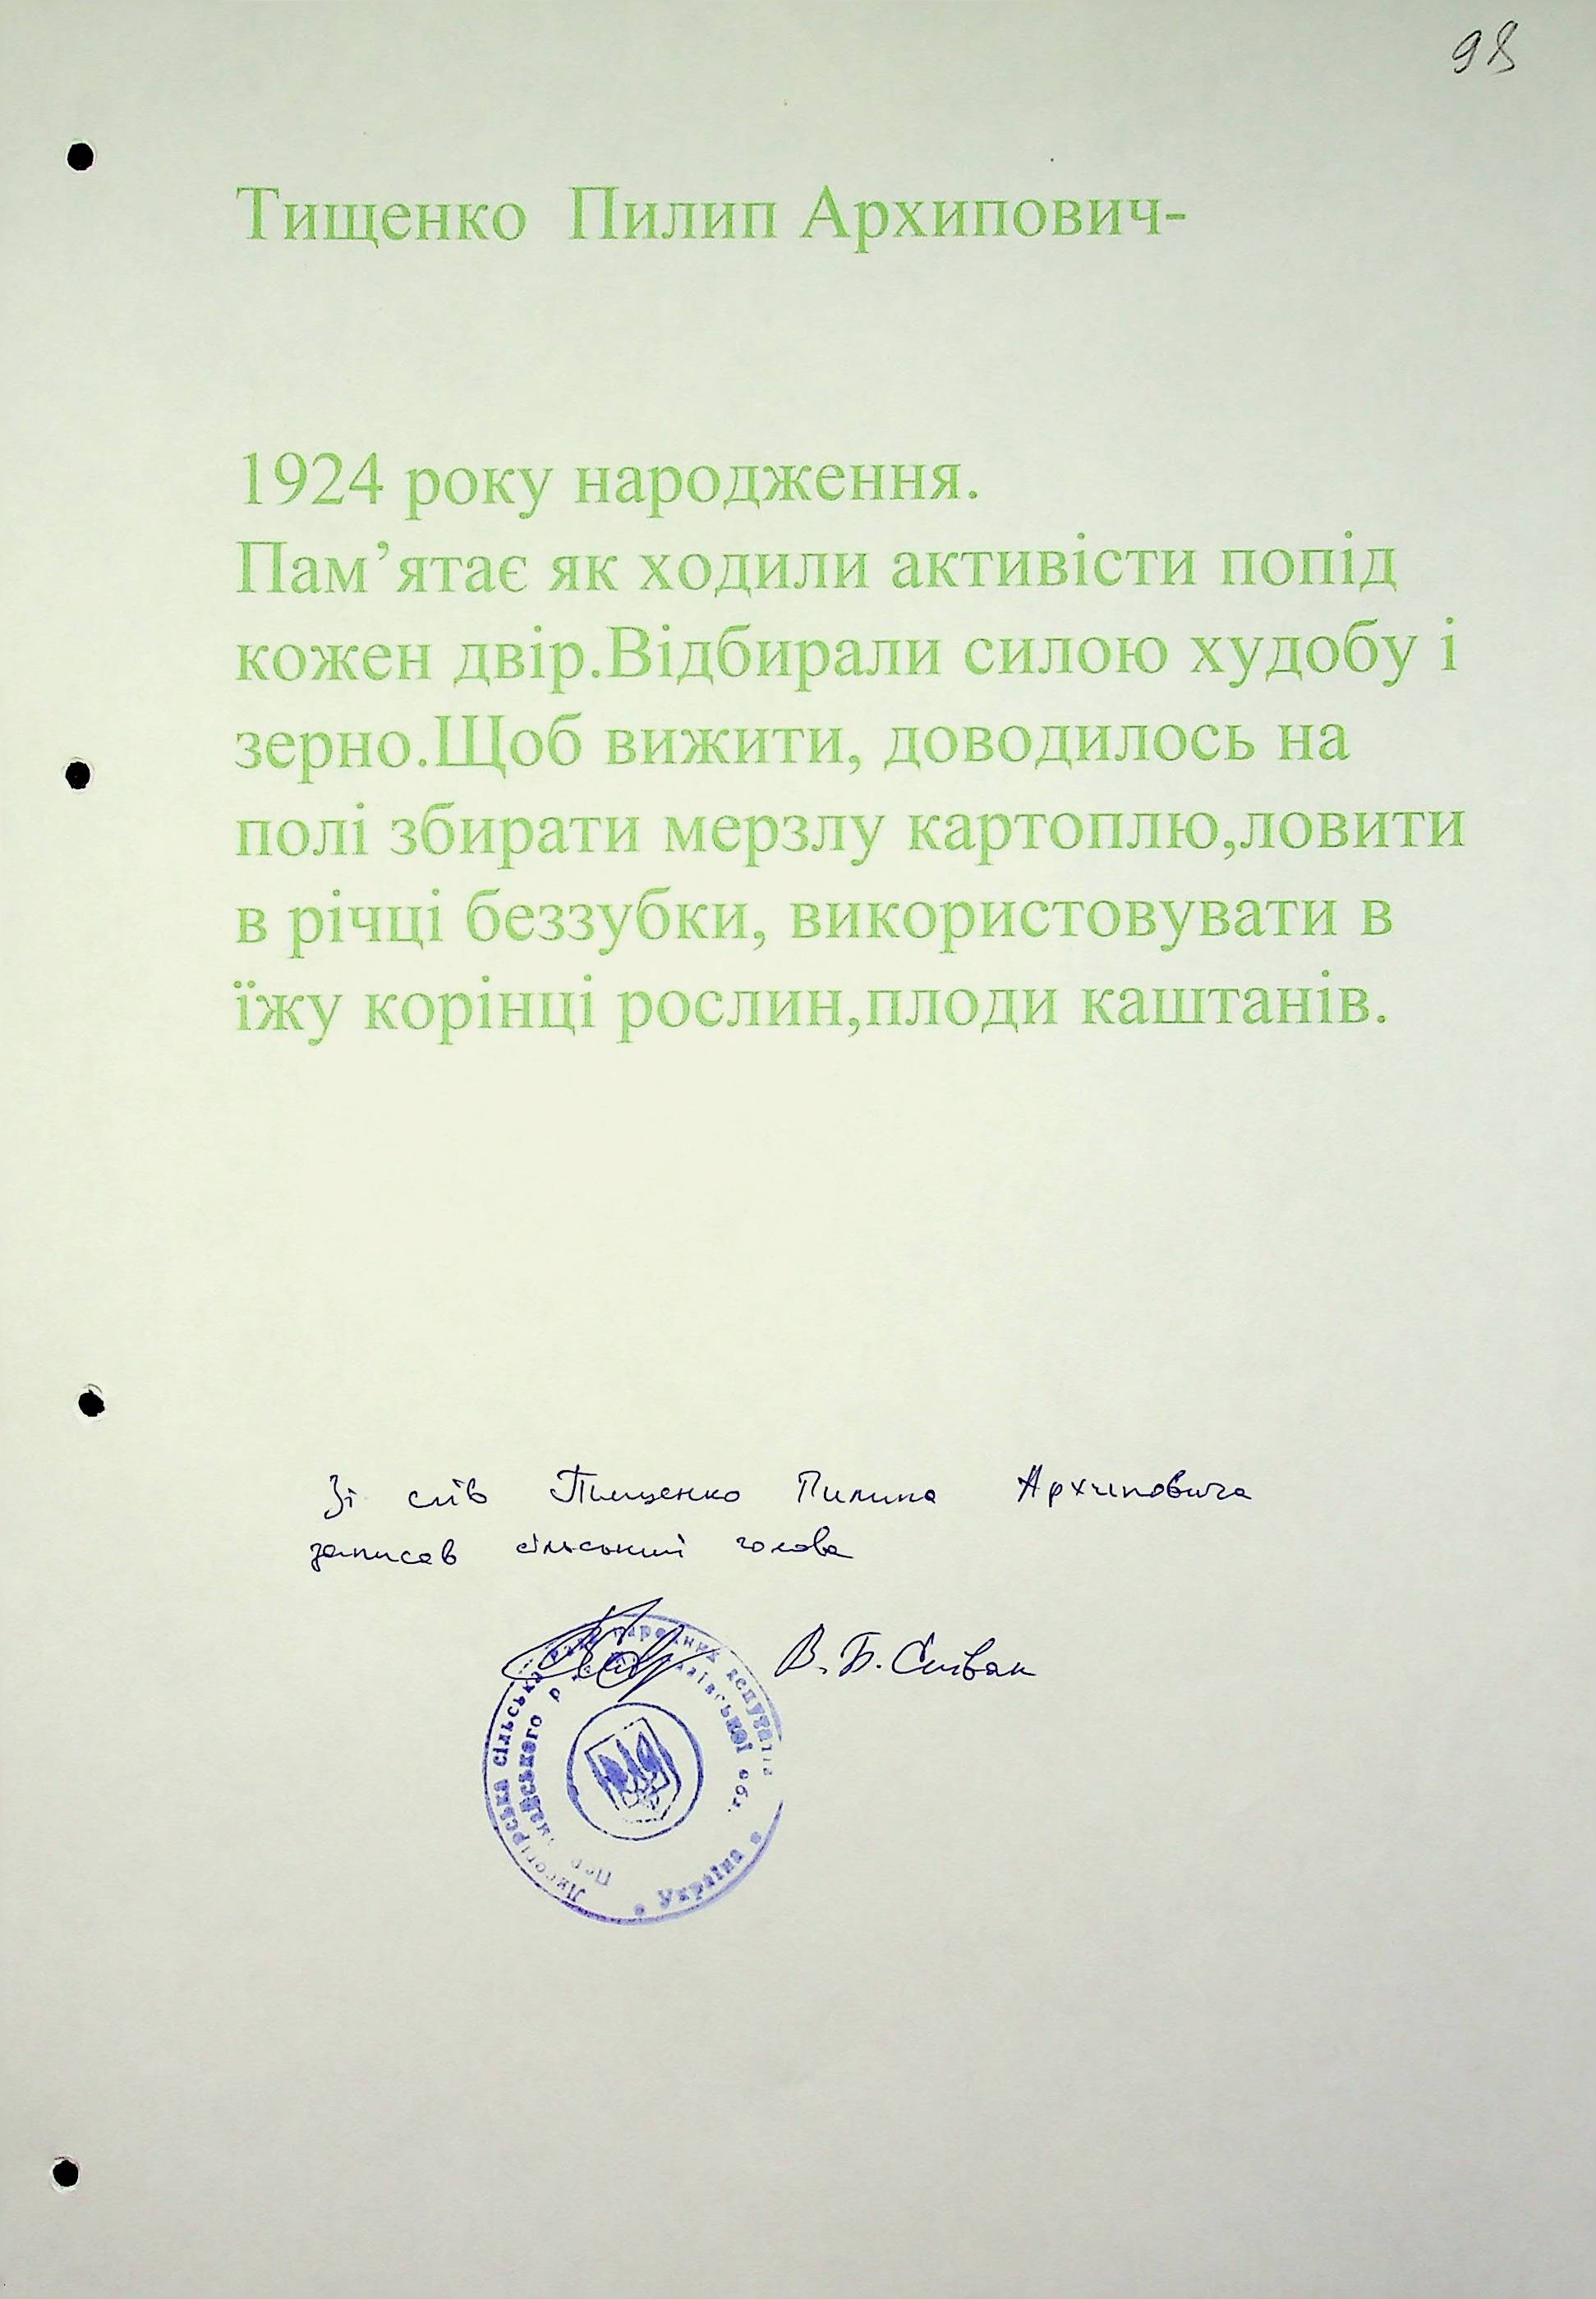 98
Тищенко Пилип Архипович-
1924 року народження.
Пам’ятає як ходили активісти попід
кожен двір.Відбирали силою худобу і
зерно.Щоб вижити, доводилось на
полі збирати мерзлу картоплю,ловити
в річці беззубки, використовувати в
їжу корінці рослин,плоди каштанів.
Зі слів Тищенко Пилипа Архиповича
записав сільський голова
В. Б. Співак
сільська народних депутатів
обл.
Україна